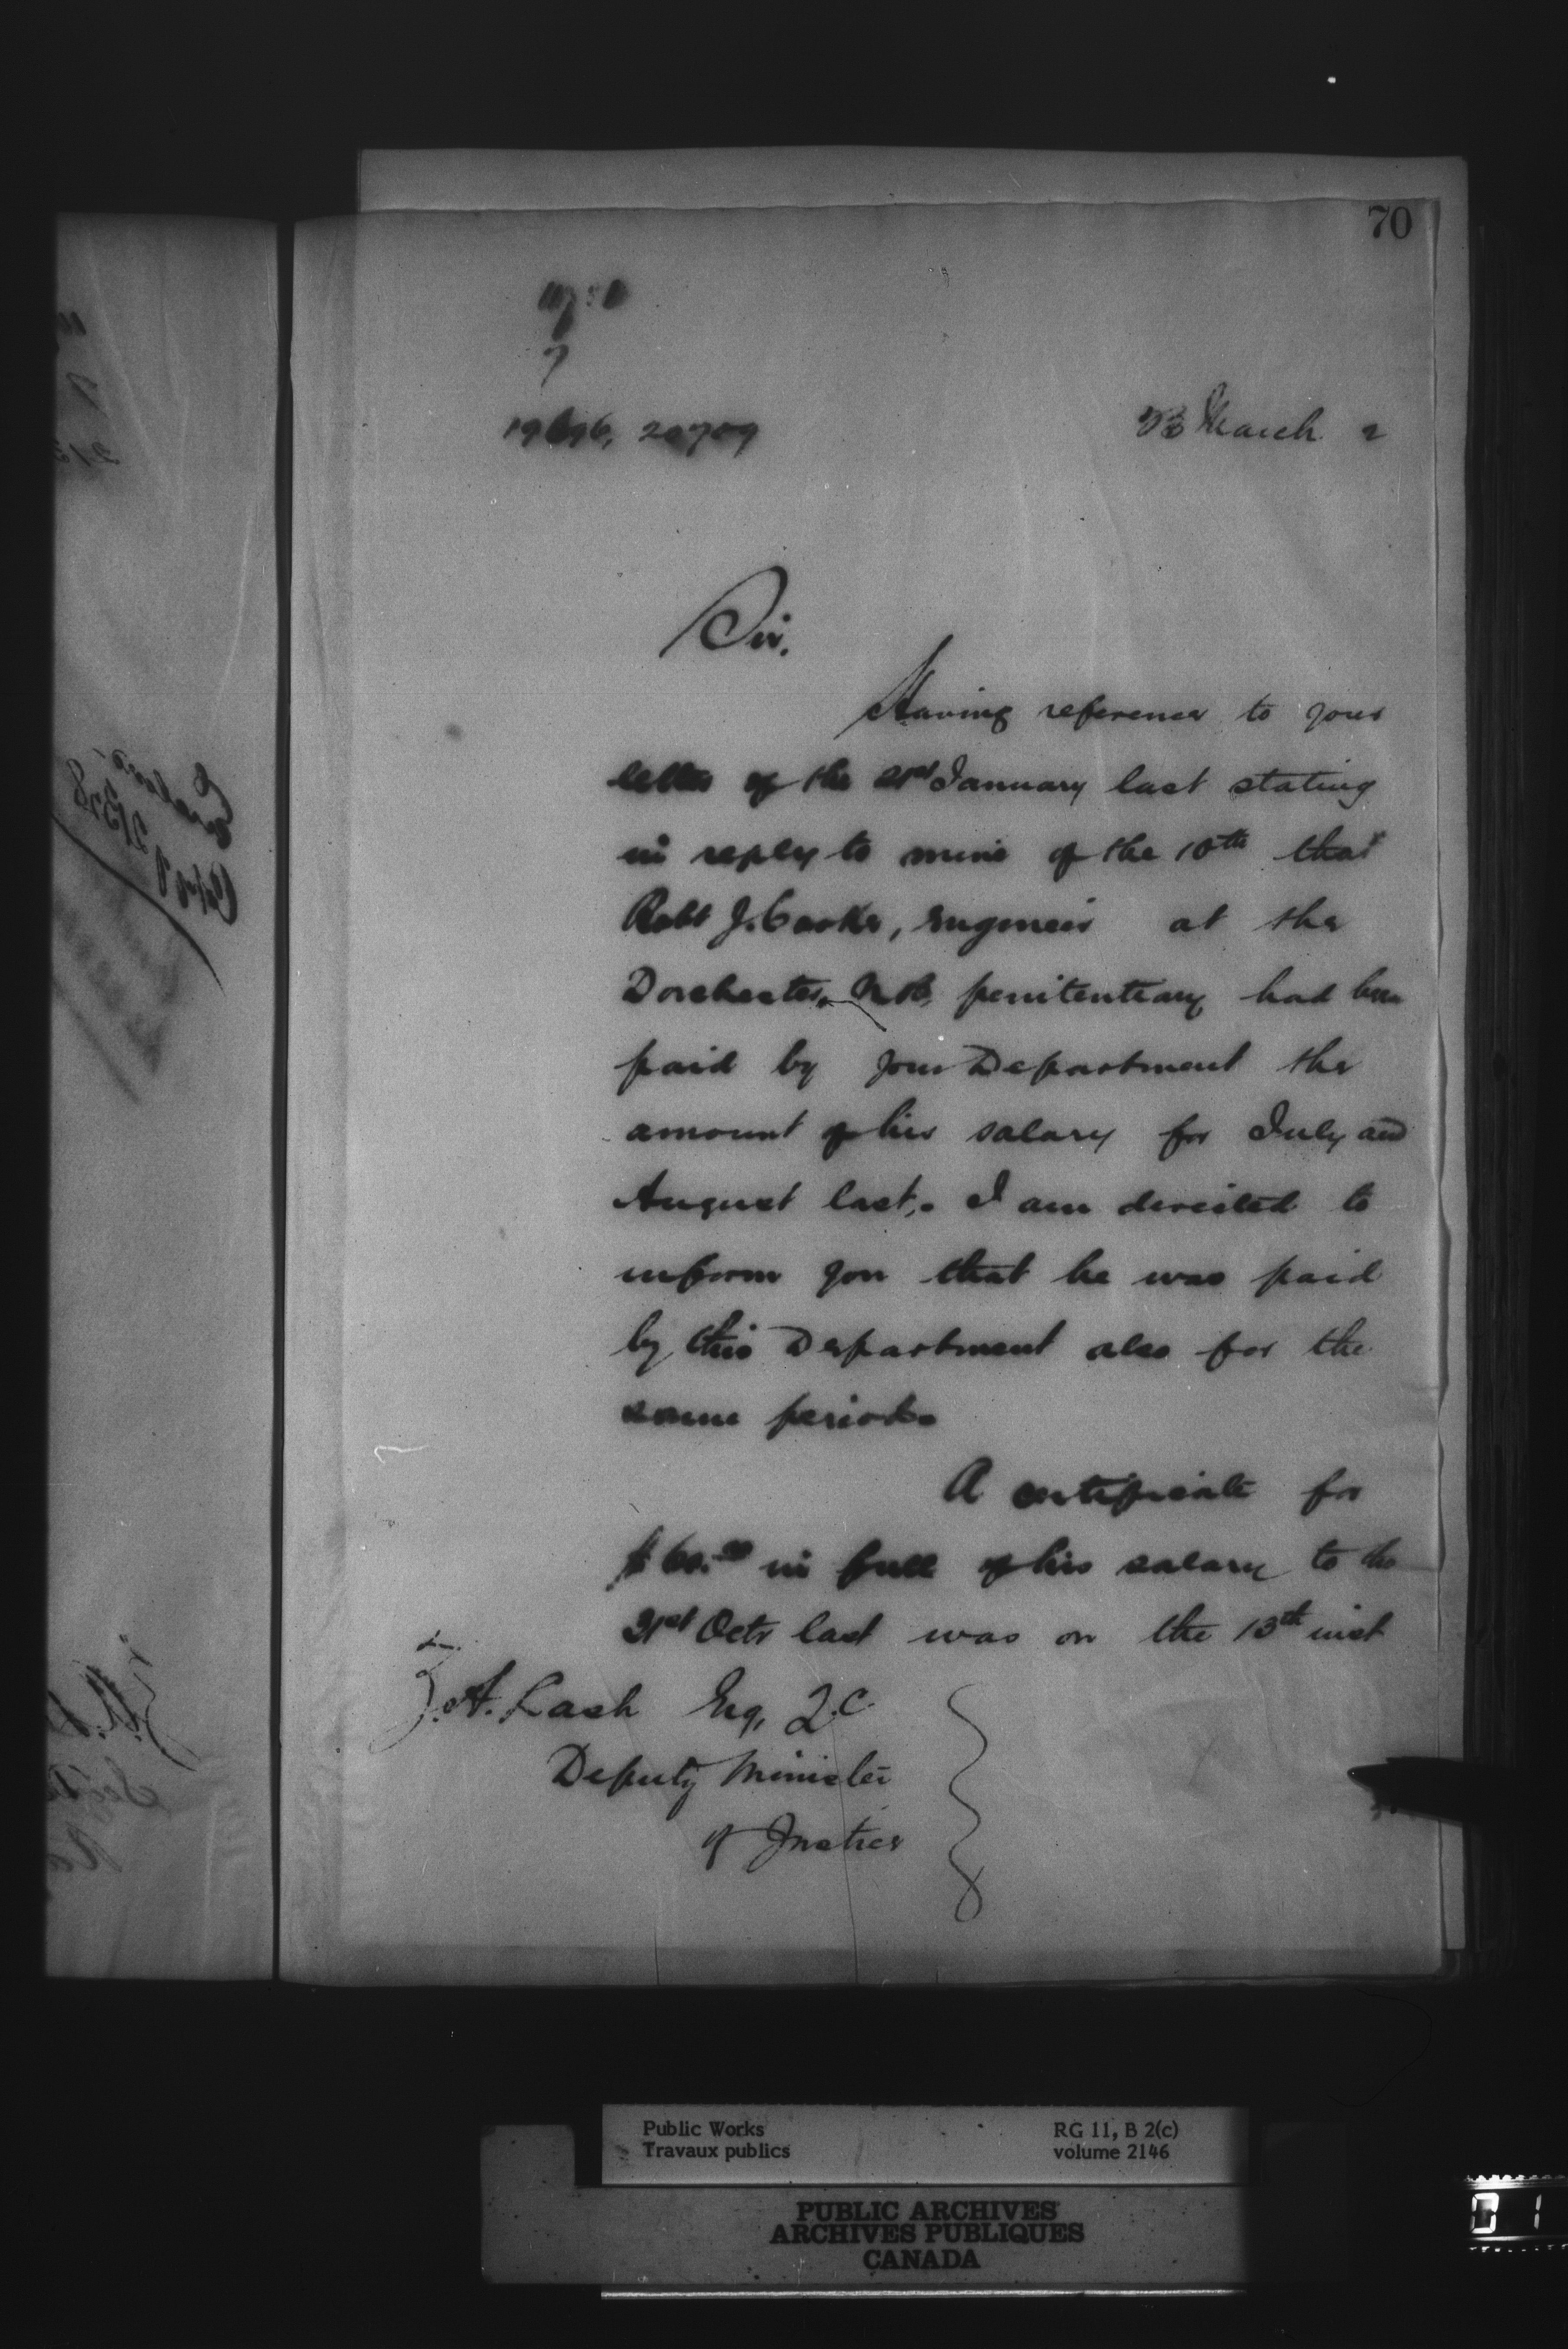 70
7
19696, 20709
23 March 2
Sir,
Having reference to your
letter of the 21st January last stating
in reply to mine of the 10th that
Robt J. Cooke, Engineer at the
Dorchester, N.B, penitentiary had been
paid by your Department the
amount of his salary for July and
August last,. I am directed to
inform you that he was paid
by this Department also for the
same period.
A certificate for
$60.00 in full of his salary to the
31st Octr last was on the 13th inst
Z. A. Lash Esq, Q.C.
Deputy Minister
of Justice
Public Works RG 11, B 2(c)
Travaux publics volume 2146
PUBLIC ARCHIVES
ARCHIVES PUBLIQUES
CANADA
01